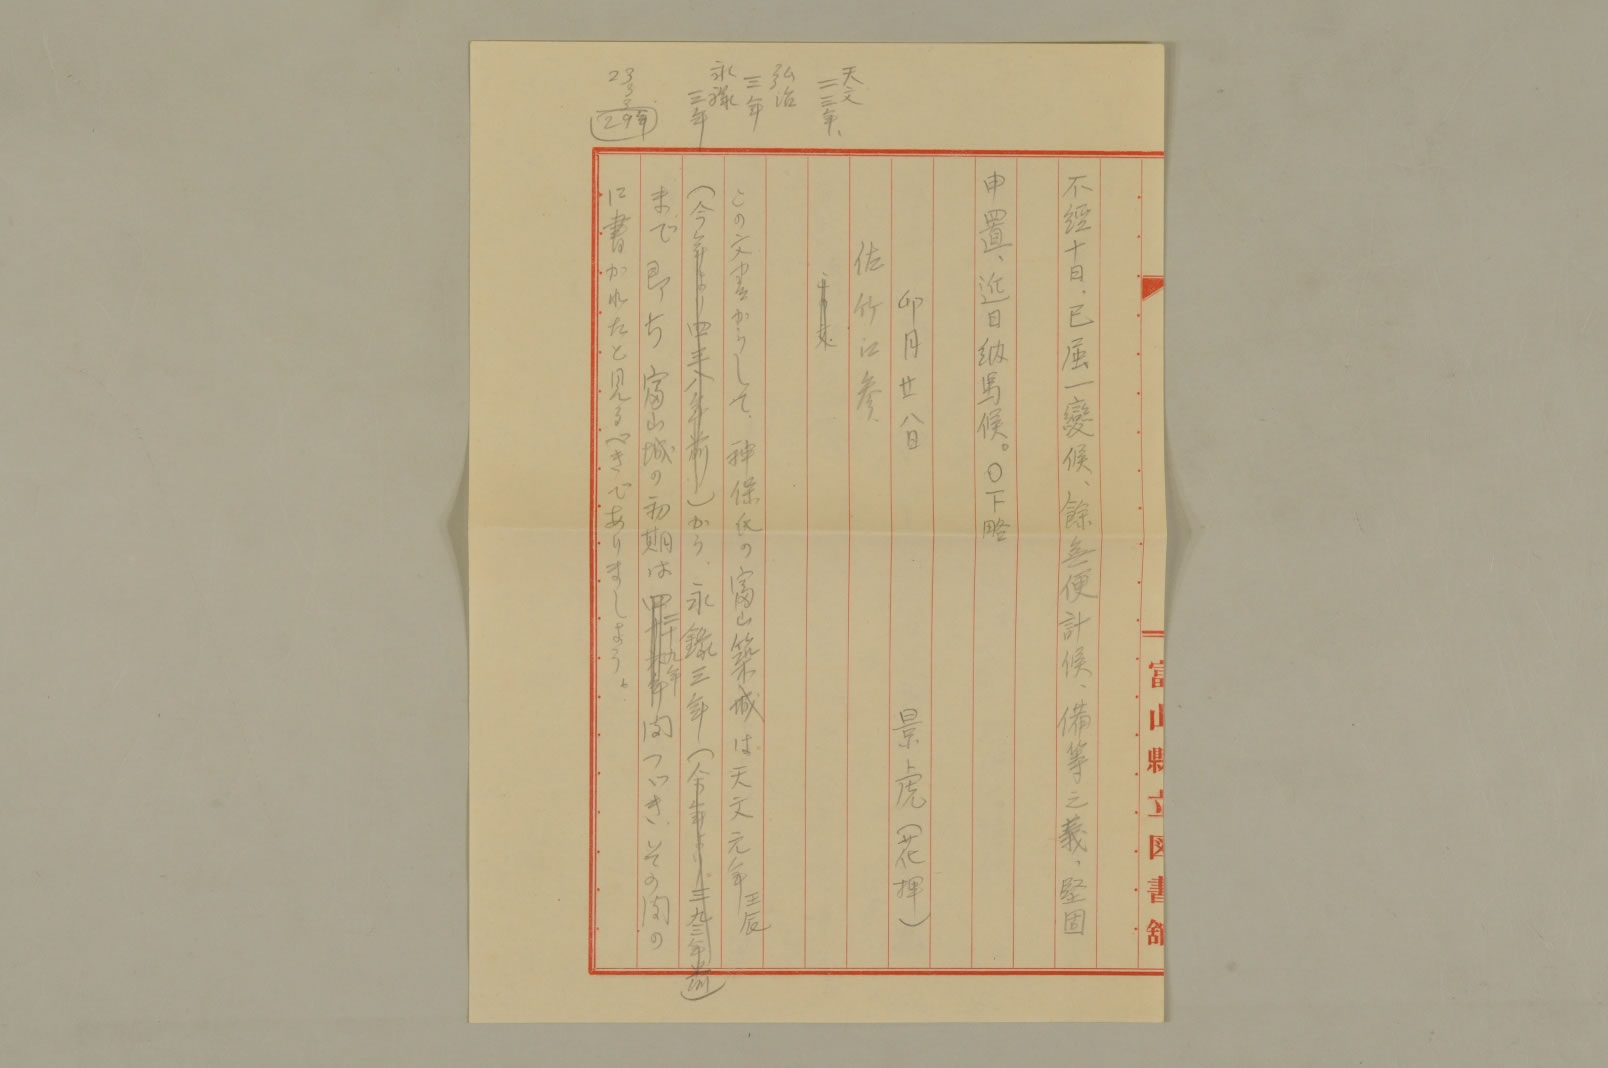 富山縣立図書館
不經十日、已屆一變候、餘無便計候、備等之義、堅固
申置、近日納馬候。〇下略
卯月廿八日　景虎（花押）
佐竹江参
この文書からして、神保氏の富山築城は天文元年壬辰
（今年より四三八年前）から、永録三年（今年より三九三年前）
まで即ち富山城の初期は二十九年間つゞき、その間の
に書かれたと見るべきでありましょう。
天文
二三年、
弘治
三年
永祿
三年
23
3
3
29年